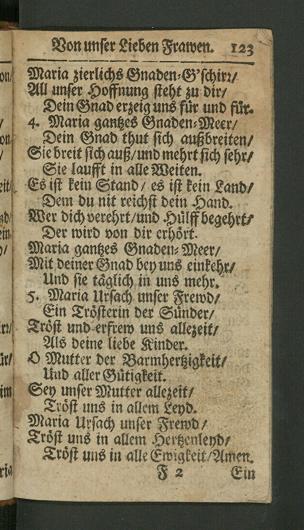 Von unser Lieben Frawen. 123
Maria zierlichs Gnaden-G'schirr/
All unser Hoffnung steht zu dir/
Dein Gnad erzeig uns für und für.
4. Maria gantzes Gnaden-Meer/
Dein Gnad thut sich außbreiten/
Sie breit sich auß/und mehrt sich sehr/
Sie laufft in alle Weiten.
Es ist kein Stand/ es ist kein Land/
Dem du nit reichst dein Hand.
Wer dich verehrt/und Hülff begehrt/
Der wird von dir erhört.
Maria gantzes Gnaden-Meer/
Mit deiner Gnad bey uns einkehr/
Und sie täglich in uns mehr.
5. Maria Ursach unser Frewd/
Ein Trösterin der Sünder/
Tröst und erfrew uns allezeit/
Als deine liebe Kinder.
O Mutter der Barmhertzigkeit/
Und aller Gütigkeit.
Sey unser Mutter allezeit/
Tröst uns in allem Leyd.
Maria Ursach unser Frewd/
Tröst uns in allem Hertzenleyd/
Tröst uns in alle Ewigkeit/Amen.
F 2 Ein